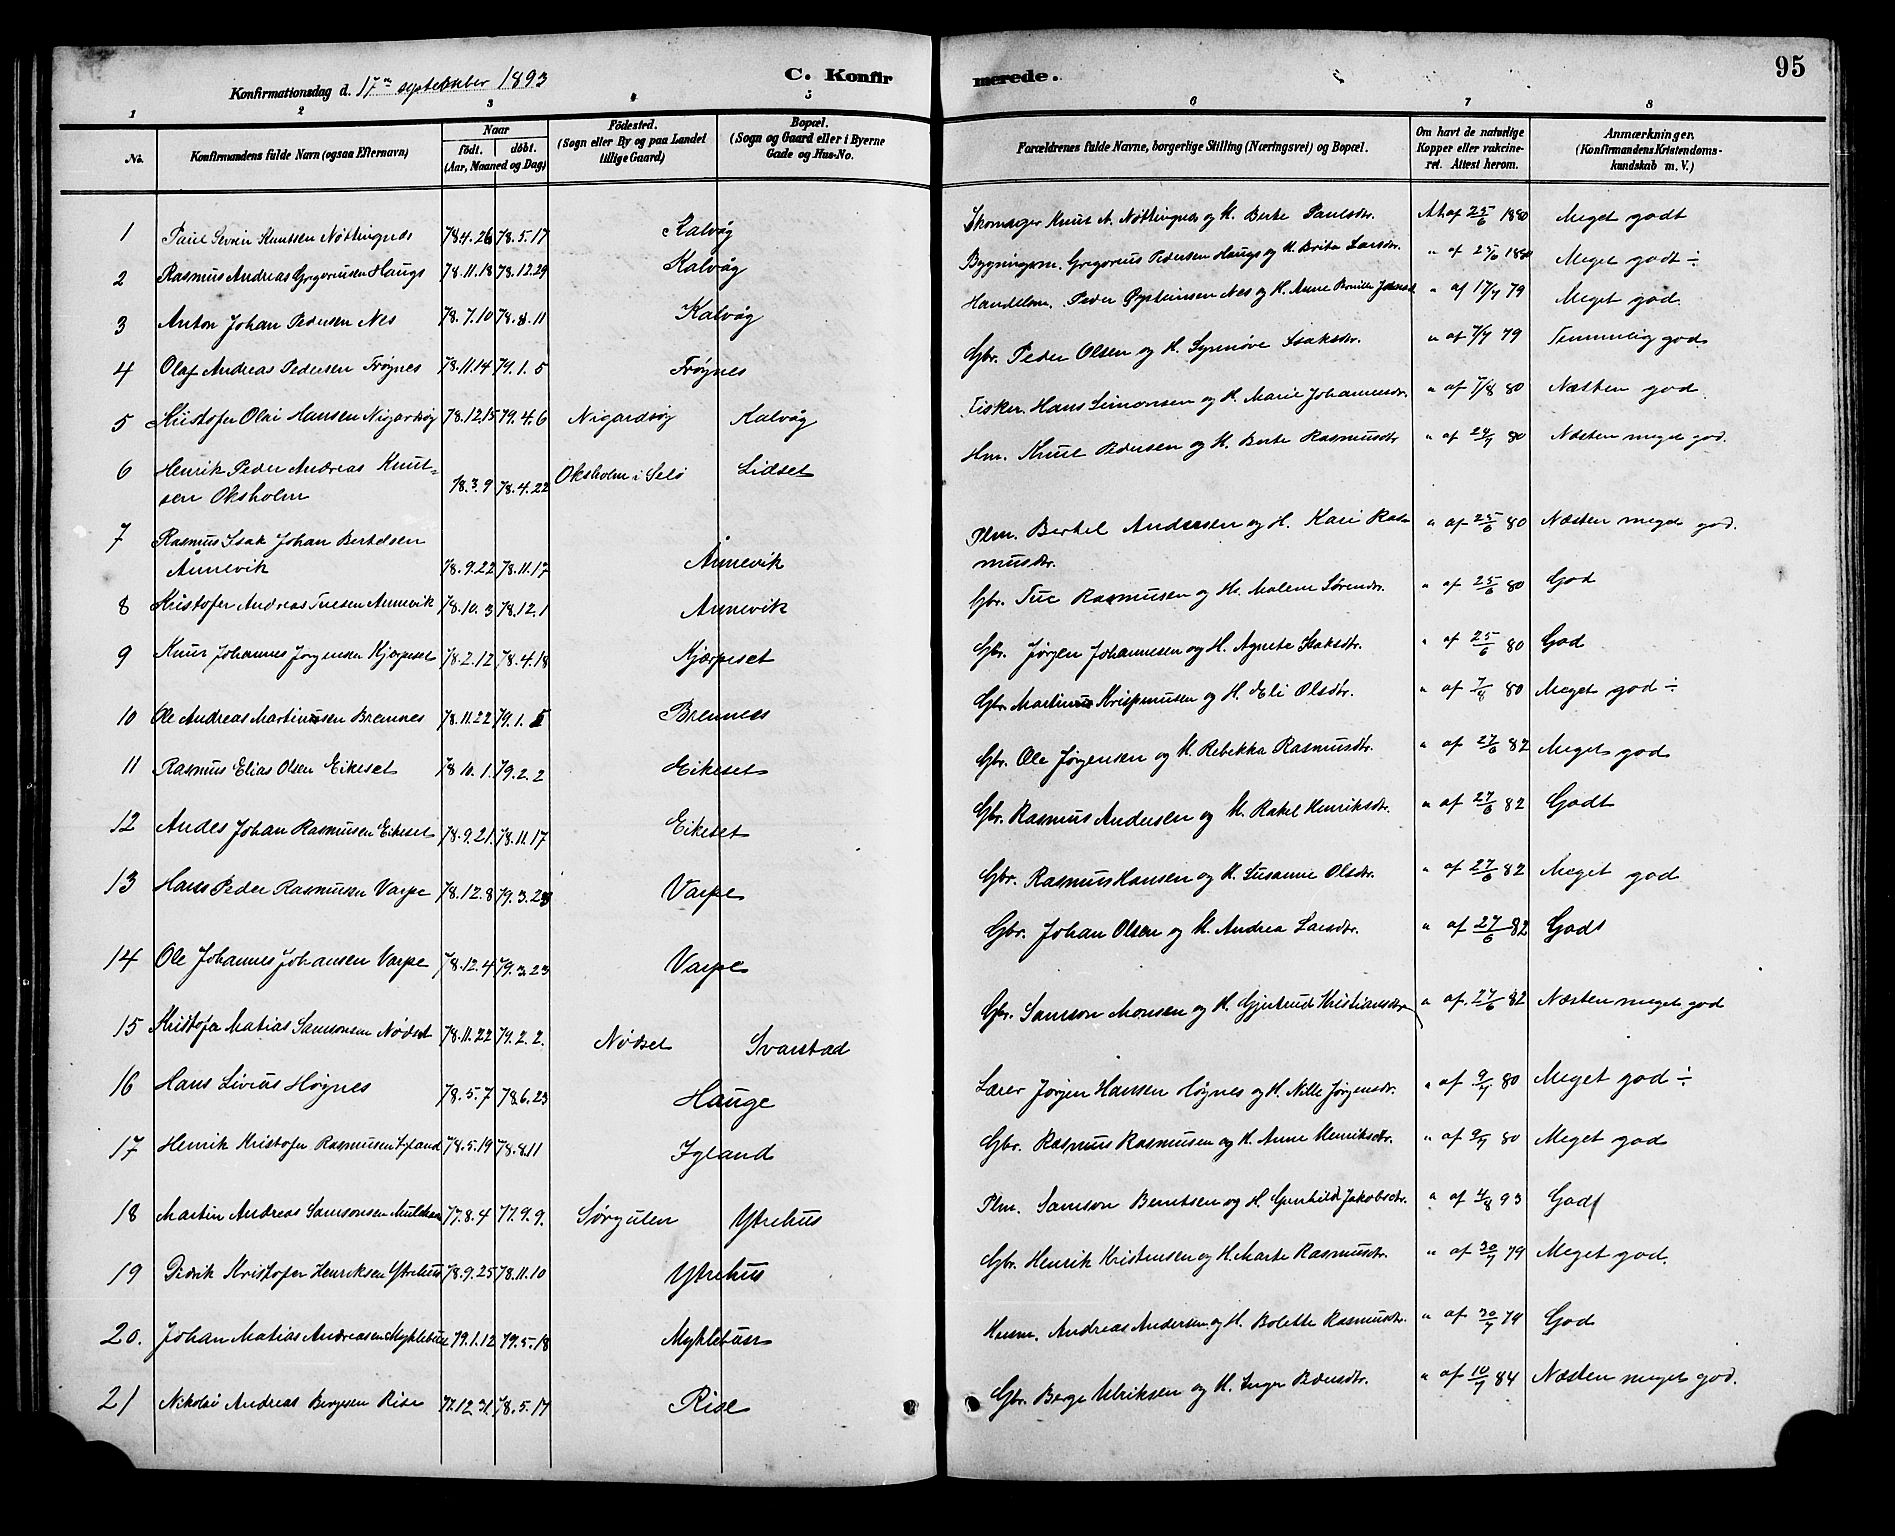 C. Konfir
merede.
95
Konfirmationsdag d. 17de september 1893
1 2 3 4 5 6 7 8
No. Konfirmandens fulde Navn (ogsaa Efternavn) Naar födt. döbt. (Aar, Maaned og Dag) Födested. (Sogn eller By og paa Landet tillige Gaard) Bopæl. (Sogn og Gaard eller i Byerne Gade og Hus-No. Forældrenes fulde Navne, borgerlige Stilling (Næringsvei) og Bopæl. Om havt de naturlige Kopper eller vakcineret. Attest herom. Anmærkninger. (Konfirmandens Kristendomskundskab m. V.)
1 Paul Severin Knutsen Nøttingnes 78.4.26 78.5.17 Kalvåg Skomager Knut N. Nøttingnes og H. Berte Paulsdtr. At af 25/6 1880 Meget godt
2 Rasmus Andreas Gregoriusen Hauge 78.11.18 78.12.29 Kalvåg Bygningsm. Gregorius Pedersen Hauge og H. Brite Larsdtr. " af 25/6 1880 Meget godt ÷
3 Anton Johan Pedersen Nes 78.7.10 78.8.11 Kalvåg Handelsm. Peder Øysteinsen Nes og H. Anne " af 17/7 79 Meget god.
4 Olaf Andreas Pedersen Frøynes 78.11.14 79.1.5 Frøynes Gbr. Peder Olsen og H. Synnøve Isaksdtr. " af 7/7 79 Temmelig god
5 Kristofer Olai Hansen Nigardsøy 78.12.15 79.4.6 Nigardsøy Kalvåg Fisker. Hans Simonsen og H. Marie Johannesdtr. " af 7/8 80 Næsten god.
6 Henrik Peder Andreas Knut-
sen Oksholm 78.3.9 78.4.22 Oksholm i Selø Lidset Hm. Knut Pedersen og H. Berte Rasmusdtr " af 24/7 80 Næsten meget god.
7 Rasmus Isak Johan Bertelsen
Ånnevik 78.9.22 78.11.17 Ånnevik Plm. Bertel Andersen og H. Kari Ras-
musdtr. " af 25/6 80 Næsten meget god.
8 Kristofer Andreas Tuesen Annevik 78.10.3 78.12.1 Annevik Gbr. Tue Rasmusen og H. Malene Sørensdtr. " af 25/6 80 God
9 Knut Johannes Jørgensen Kjærpeset 78.2.12 78.4.18 Kjærpeset Gbr. Jørgen Johannesen og H. Agnete Isaksdtr. " af 25/6 80 God
10 Ole Andreas Martinusen Bremnes 78.11.22 79.1.5 Bremnes Gbr. Martinus og H. Eli Olsdtr. " af 7/8 80 Meget god ÷
11 Rasmus Elias Olsen Eikeset 78 10.1. 79.2.2 Eikeset Gbr. Ole Jørgensen og H. Rebekka Rasmusdtr. " af 27/6 82 Meget god
12 Andes Johan Rasmusen Eikeset 78.9.21. 78.11.17 Eikeset Gbr. Rasmus Andersen og H. Rakel Henriksdtr. " af 27/6 82 Godt
13 Hans Peder Rasmusen Varpe 78.12.8 79.3.23 Varpe Gbr. Rasmus Hansen og H. Susanne Olsdtr. " af 27/6 82 Meget god
14 Ole Johannes Johansen Varpe 78.12.4 79.3.23 Varpe Gbr. Johan Olsen og H. Andrea Larsdtr. " af 27/6 82 Godt
15 Kristofer Matias Samsonsen Nødset 78.11.22 79.2.2. Nødset Svarstad Gbr. Samson Monsen og H. Gjertrud Kristiansdtr. " af 27/6 82 Næsten meget god
16 Hans Livius Høgnes 78.5.7 78.6.23 Hauge Lærer Jørgen Hansen Høgnes og H. Nille Jørgensdtr. " af 9/7 80 Meget god ÷
17 Henrik Kristofer Rasmusen Igland 78.5.19 78.8.11 Igland Gbr. Rasmus Rasmusen og H. Anne Henriksdtr. " af 9/7 80 Meget god
18 Martin Andreas Samsonsen 77.8.4 77.9.9. Sørgulen Ytrehus Plm. Samson Berntsen og H. Gunhild Jakobsdtr. " af 4/8 93 Godt
19 Didrik Kristofer Henriksen Ytrehus 78.9.25 78.11.10 Ytrehus Gbr. Henrik Kristensen og H. Marte Rasmusdtr. " af 30/7 79 Meget god.
20. Johan Matias Andreasen Myklebust 79.1.12 79.5.18 Myklebust Husm. Andreas Andersen og H. Bolette Rasmusdtr. " af 30/7 79 God
21 Nikolai Andreas Bergesen Rise 77.12.31. 78.5.17 Rise Gbr. Berge Ulriksen og H. Inger " af 10/7 84 Næsten meget god.